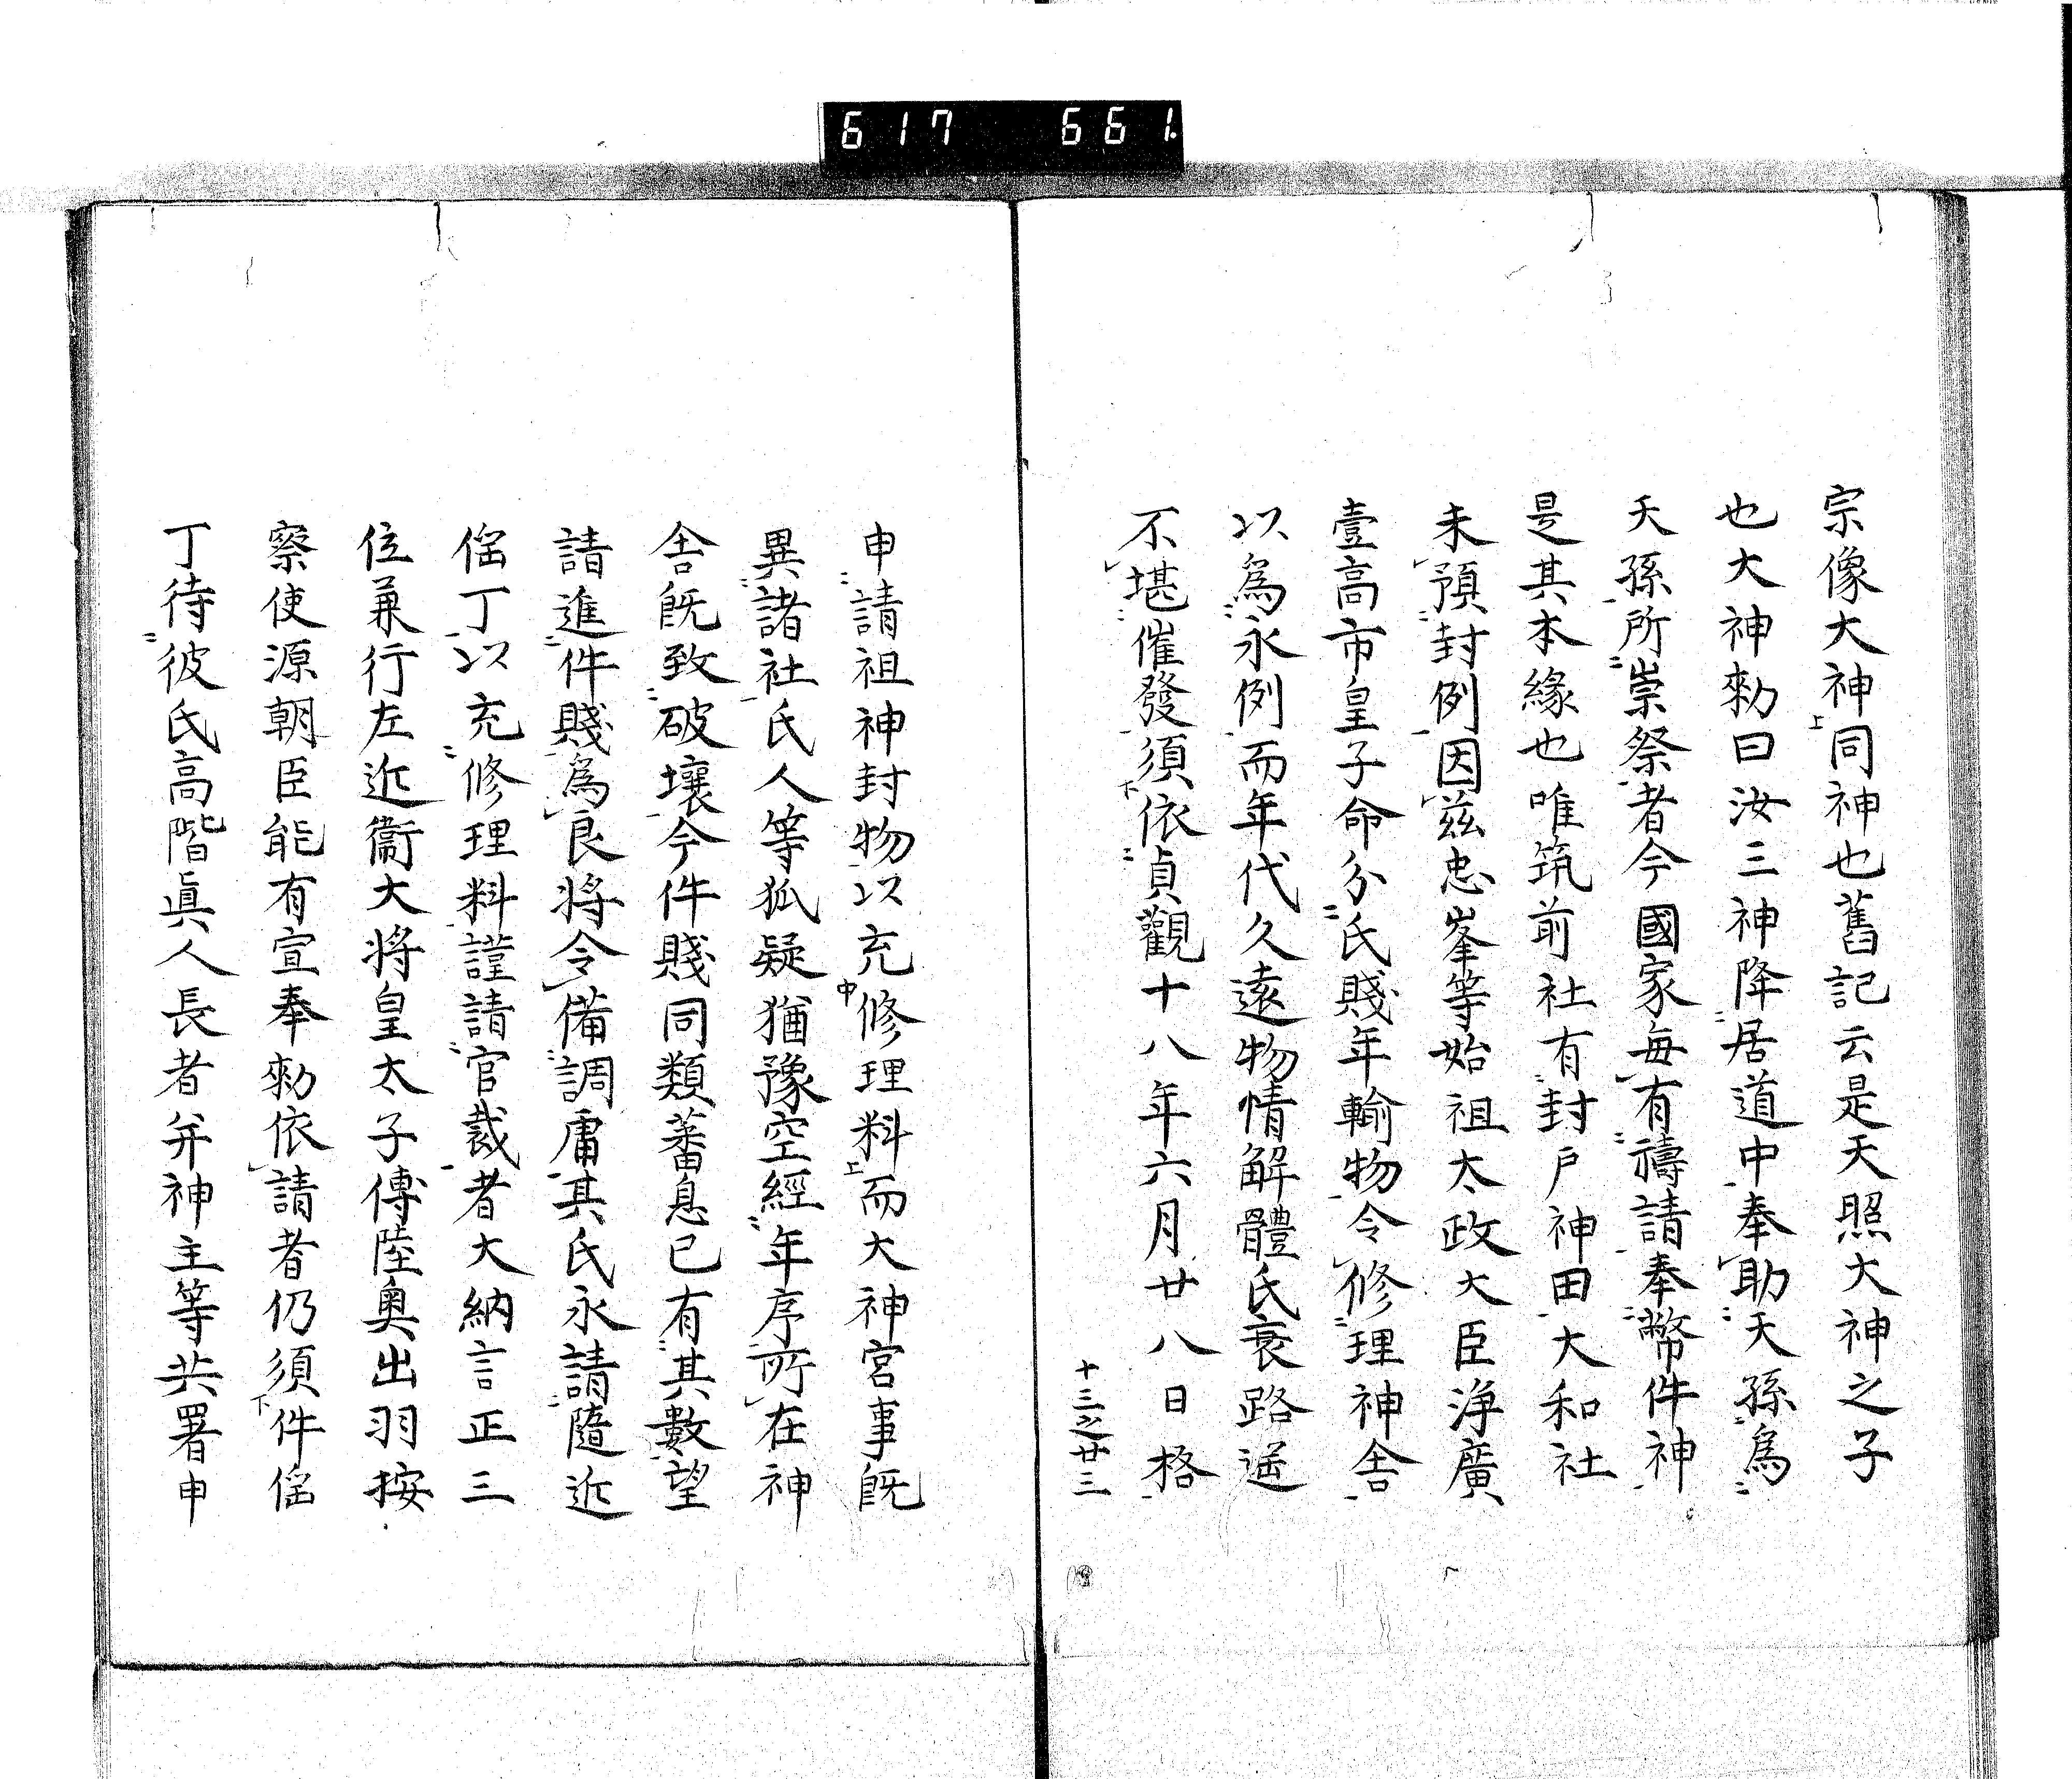 617 661
宗像大神同神也舊記云是天照大神之子
也大神勅曰汝三神降居道中奉助天孫爲
天孫所崇祭者今國家毎有禱請奉幣件神
是其本緣也唯筑前社有封戸神田大和社
未預封例因玆忠峯等始祖太政大臣浄廣
壹高市皇子命分氏賤年輸物令修理神舎
以爲永例而年代久遠物情解體氏衰路遥
不堪催發須依貞觀十八年六月廿八日格
十三之廿三
申請祖神封物以充修理料而大神宮事既
異諸社氏人等狐疑猶豫空經年序所在神
舎既致破壞今件賤同類蕃息已有其數望
請進件賤爲良将令備調庸其氏永請隨近
徭丁以充修理料謹請官裁者大納言正三
位兼行左近衞大将皇太子傅陸奥出羽按
察使源朝臣能有宣奉勅依請者仍須件徭
丁待彼氏高階眞人長者并神主等共署申